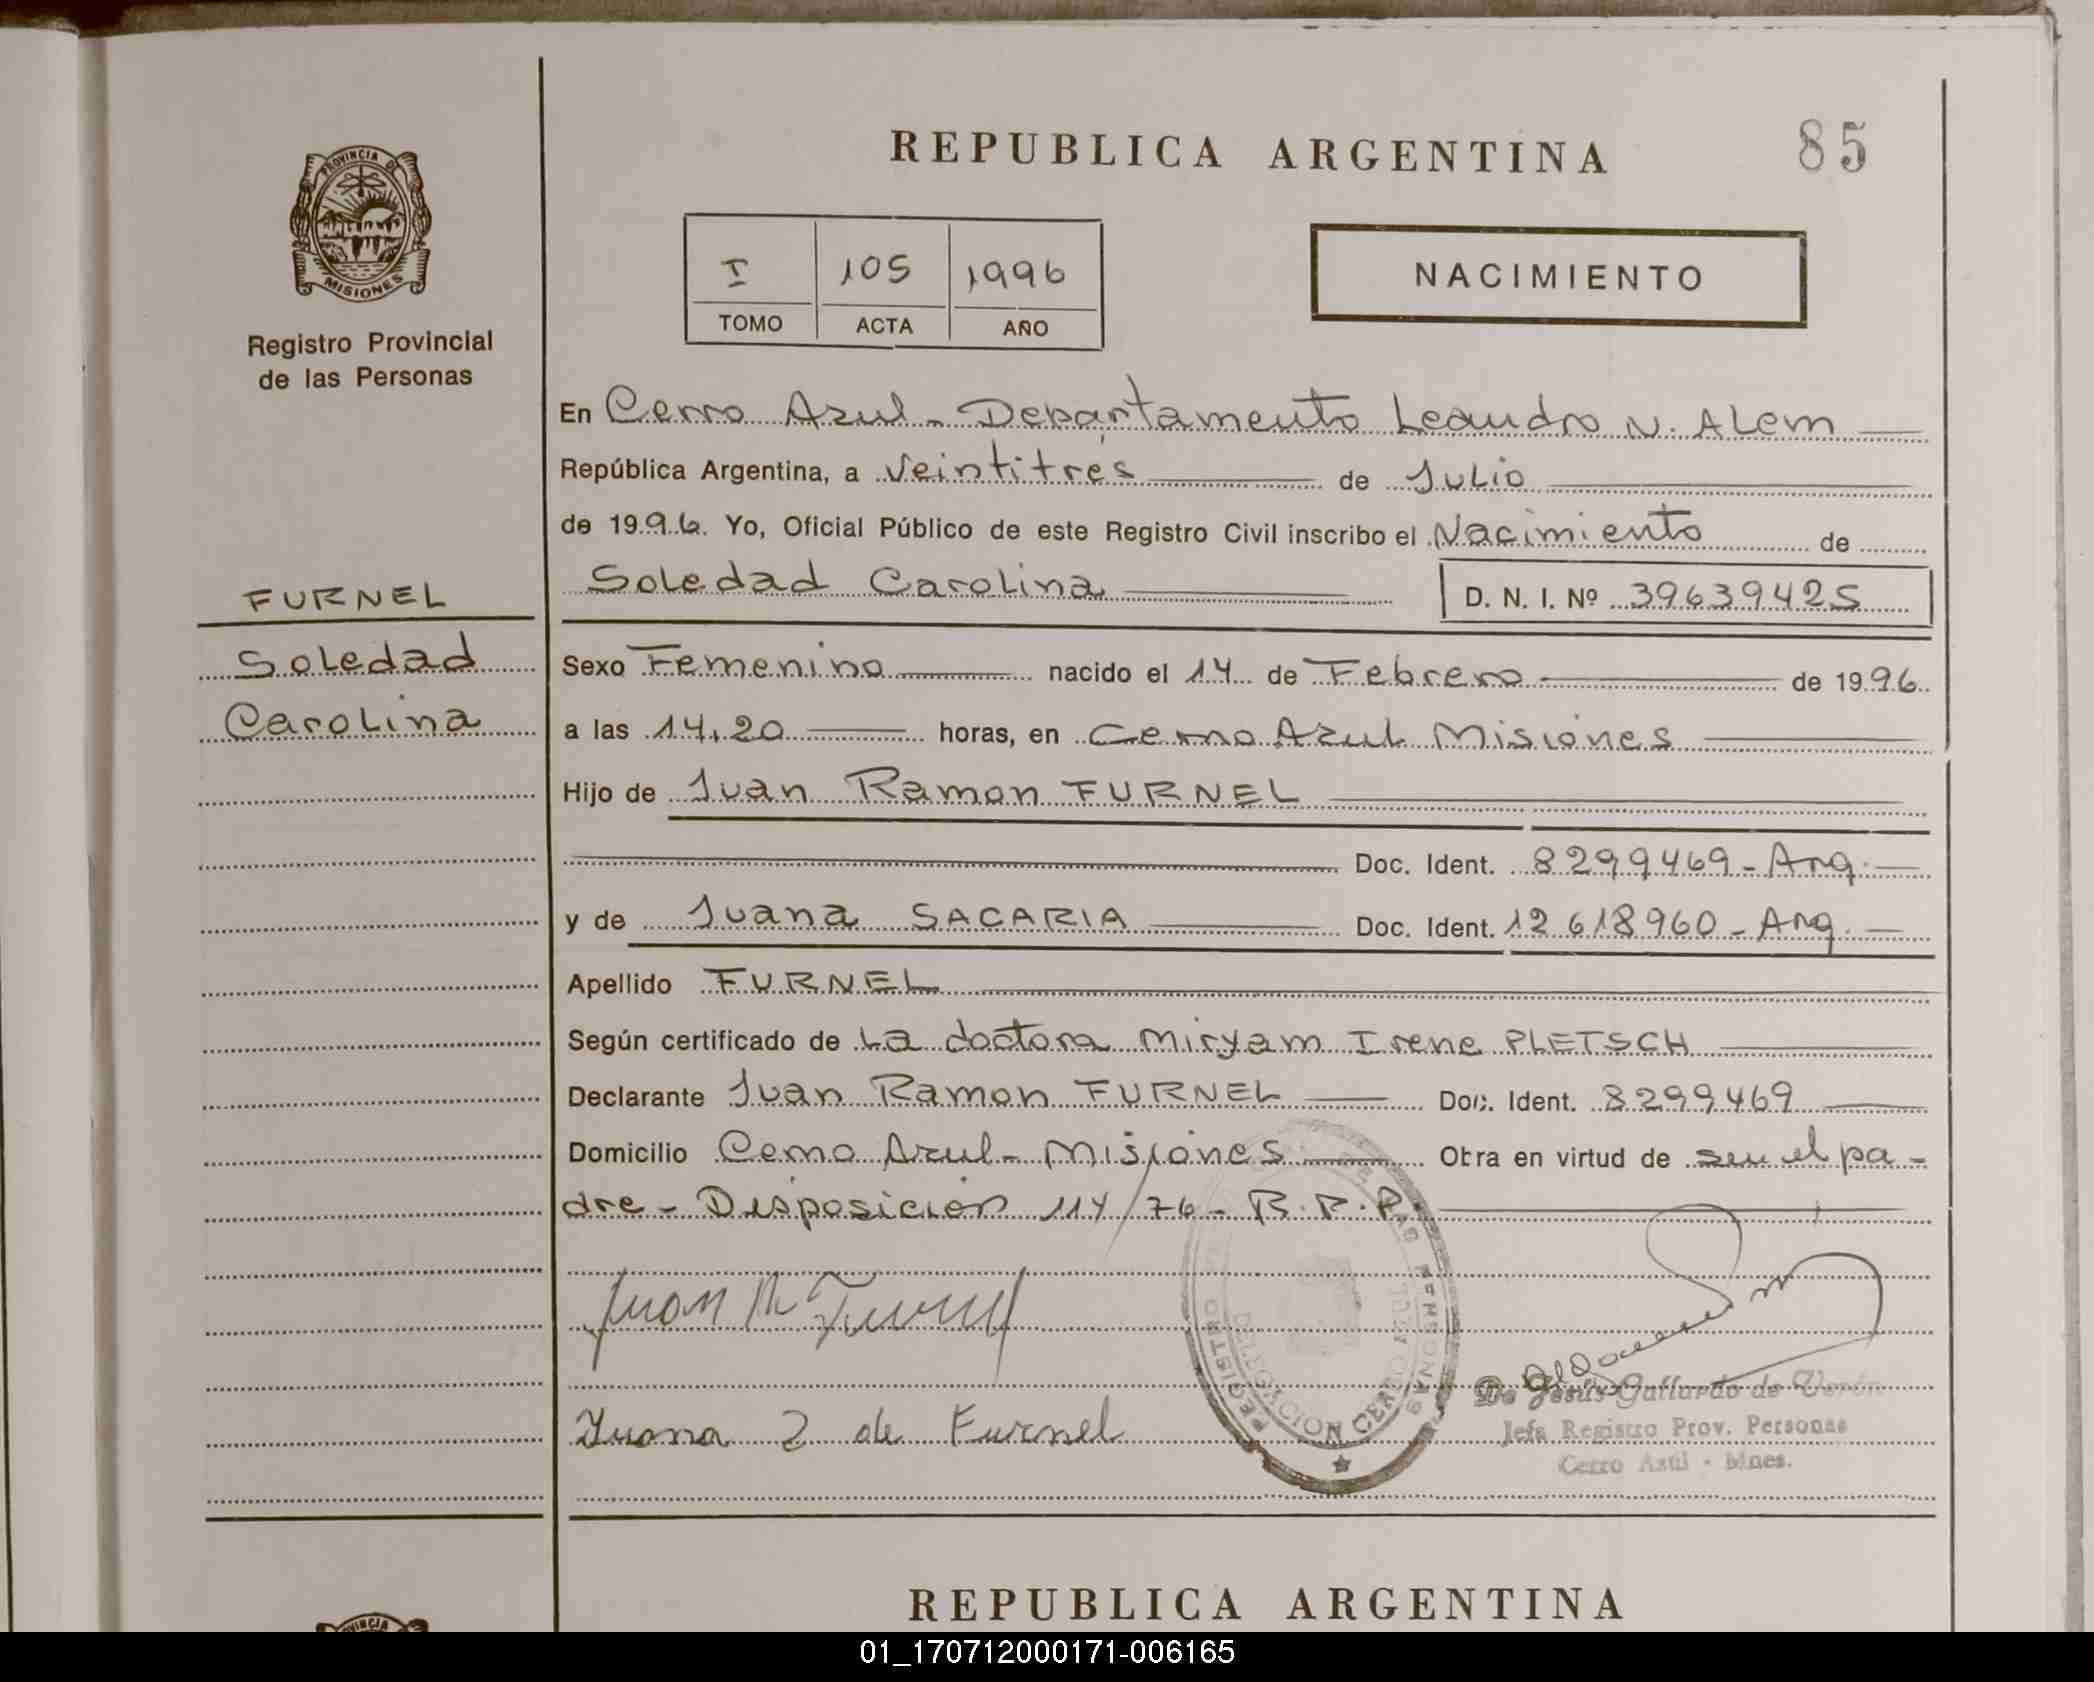 REPUBLICA ARGENTINA
85
PROVINCIA DE
MISIONES
Registro Provincial
de las Personas
I 105 1996
TOMO ACTA AÑO
NACIMIENTO
En Cerro Azul - Departamento Leandro N. Alem
República Argentina, a Veintitrés de Julio
de 1996. Yo, Oficial Público de este Registro Civil inscribo el Nacimiento de
Soledad Carolina D. N. I. Nº 39639425
FURNEL
Soledad
Carolina
Sexo Femenino nacido el 14 de Febrero de 1996.
a las 14,20 horas, en Cerro Azul Misiones
Hijo de Juan Ramon FURNEL
Doc. Ident. 8299469 - Arg.
y de Juana SACARIA Doc. Ident. 12 618960 - Arg.
Apellido FURNEL
Según certificado de La doctora Miryam Irene PLETSCH
Declarante Juan Ramon FURNEL Doc. Ident. 8299469
Domicilio Cerro Azul - Misiones Obra en virtud de ser el pa-
dre - Disposición 114/76 - R.P.P.
Juan R Furnel
Juana Z de Furnel
REGISTRO PERSONAS
DELEGACION CERRO
De Jesús Gallardo de Verón
Jefa Registro Prov. Personas
Cerro Azul - Mnes.
REPUBLICA ARGENTINA
01_170712000171-006165